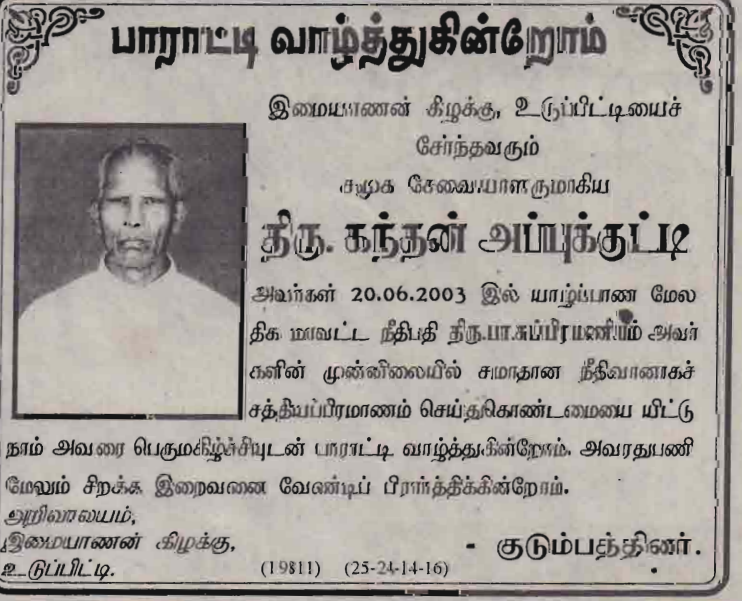 பாராட்டி வாழ்த்துகின்றோம்
இமையாணன் கிழக்கு, உடுப்பிட்டியைச்
சேர்ந்தவரும்
சமூக சேவையாளருமாகிய
திரு. கந்தன் அப்புக்குட்டி
அவர்கள் 20.06.2003 இல் யாழ்ப்பாண மேல
திக மாவட்ட நீதிபதி திரு.பா.சுப்பிரமணியம் அவர்
களின் முன்னிலையில் சமாதான நீதிவானாகச்
சத்தியப்பிரமாணம் செய்துகொண்டமையை யிட்டு
நாம் அவரை பெருமகிழ்ச்சியுடன் பாராட்டி வாழ்த்துகின்றோம். அவரதுபணி
மேலும் சிறக்க இறைவனை வேண்டிப் பிரார்த்திக்கின்றோம்.
அறிவாலயம்,
இமையாணன் கிழக்கு,
உடுப்பிட்டி.
- குடும்பத்தினர்.
(19811) (25-24-14-16)